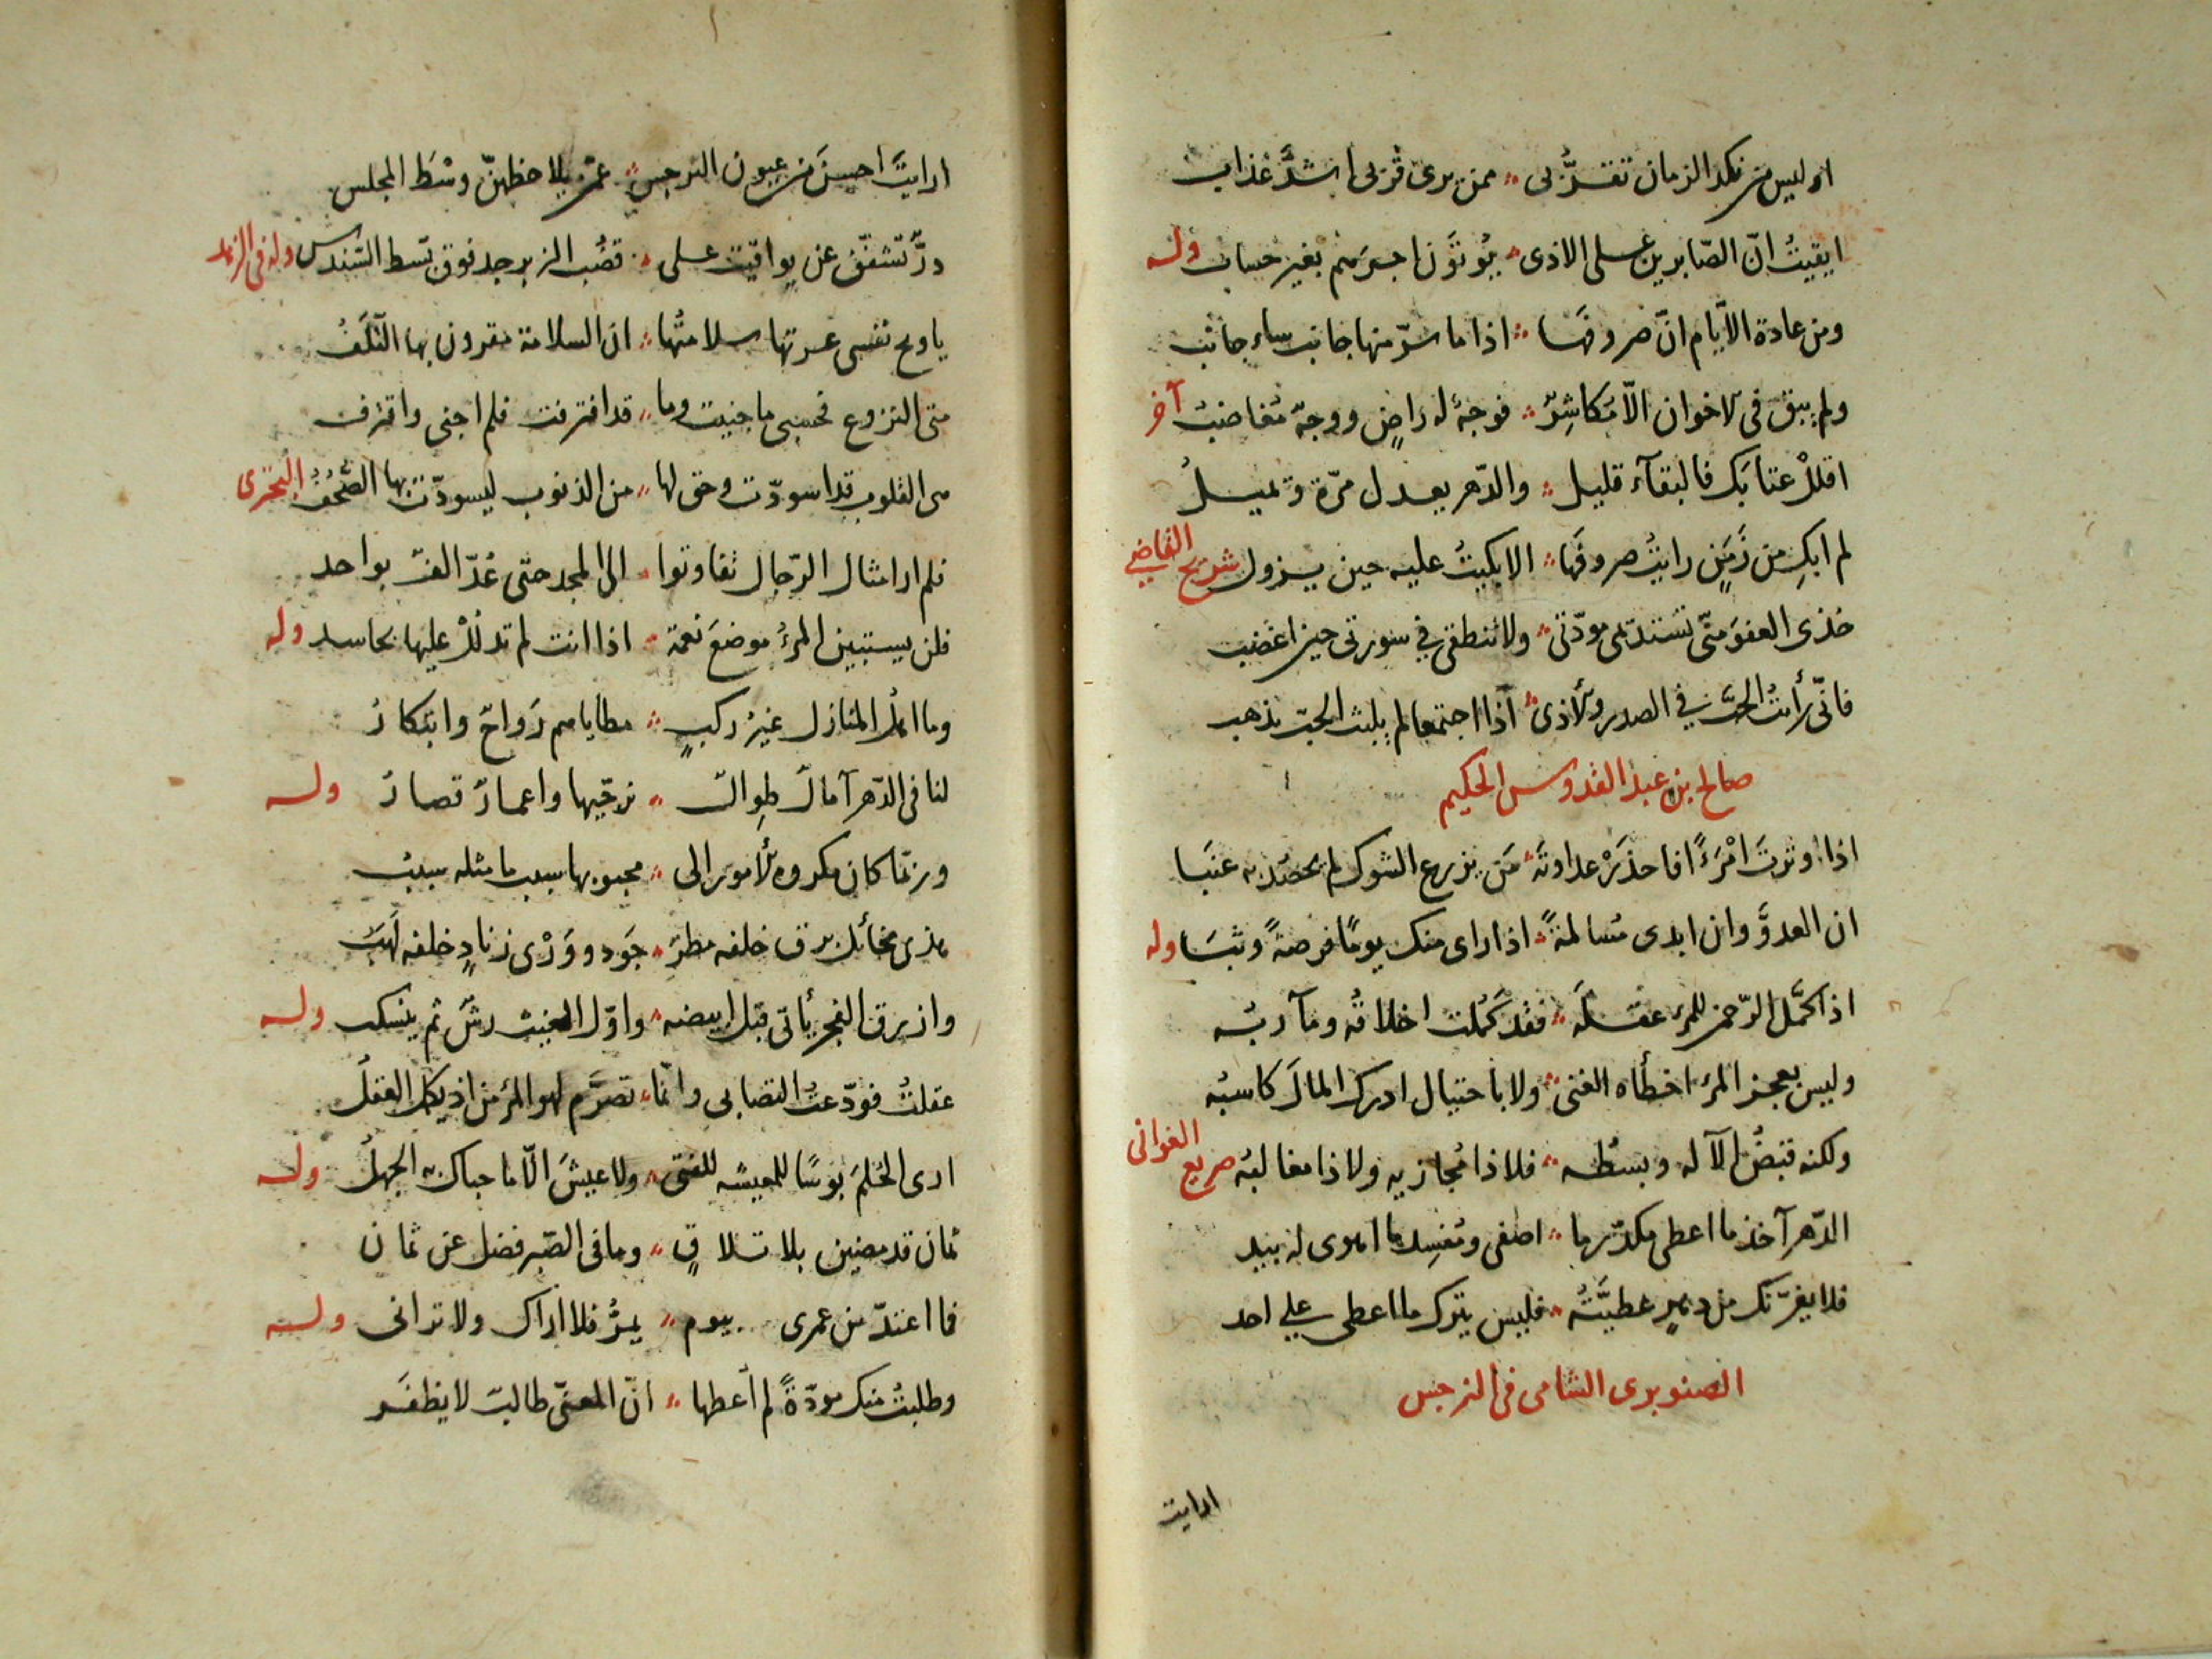 اوليس من نكد الزمان تقرّبى ممن يرى قربى اشدَّ عذاب
ايقنتُ انّ الصّابرين على الاذى يُوتَوْن اجرهم بغير حساب وله
ومن عادة الايّام انّ صروفها اذا ما سرّ منها جانب ساء جانب
ولم يبق فى الاخوان الّا مكاشِرٌ فوجهٌ له راضٍ ووجهٌ مغاضبُ آخر
اقللْ عتابَك فالبقآء قليل والدّهر يعدل مرّة ويميلُ
لم ابكِ من زَمَنٍ رايتُ صروفَها الا بكيتُ عليه حين يزول شريح القاضي
خذى العفوَ منّى تستديمى مودّتى ولا تنطقى فى سورتى حين اغضب
فانّى رأيتُ الحبّ فى الصدر والاذى اذا اجتمعا لم يلبث الحبّ يذهب
صالح بن عبد القدوس الحكيم
اذا وترتَ امْرَءًا فاحذَرْ عداوتَهُ مَن يزرع الشوك لم يحصُد به عنبَا
ان العدوَّ وان ابدى مسالمةً اذا راى منك يومًا فرصةً وثبَا وله
اذا كمّل الرّحمن للمرء عقله فقد كَمُلت اخلاقُه ومآربُه
وليس بعجز المرء اخطأه الغنى ولا باحتيال ادرك المالَ كاسبُه
ولكنه قبضُ الآله وبسطُه فلا ذا مُجازيه ولا ذا مغالبُه صريع الغوانى
الدّهر آخذ ما اعطى مكدّر ما اصفى ومُفسِد ما اهوى له بيد
فلا يغرّنّك من دهرٍ عطيّتُه فليس يترك ما اعطى على احد
الصنوبرى الشامى فى النرجس
ارايت
ارايتَ احسنَ من عيون النرجس عمن يلاحظهنّ وسْطَ المجلس
درٌّ تشقّق عن يواقيت على قضُب الزبرجد فوق بسط السّندس وله فى الزهد
يا ويح نفسى غرتها سلامتُها ان السلامة مقرون بها التَلَفُ
متى النزوع فحسبى ما جنيت وما قد اقترفت فلم اجنى واقترف
هى القلوب قد اسودّت وحق لها من الذنوب ليسودّت بها الصُّحُفُ البحترى
فلم ار امثال الرّجال تفاوتوا الى المجد حتى عُدّ الفٌ بواحد
فلن يستبين المرءُ موضعَ نعمة اذا انت لم تدلُلْ عليها بحاسد وله
وما اهل المنازل غيرُ ركبٍ مطاياهم رَواحٌ وابتكارُ
لنا فى الدّهر آمالٌ طِوالٌ نرجّيها واعمارٌ قصارُ وله
وربّما كان مكروه الأمور الى محبوبها سببا ما مثله سببُ
هذى مخائل برق خلفه مطر جَود ووَرْى زنادٍ خلفه لَهَبُ
وازرق الفجر يأتى قبل ابيضه واوّل الغيث رشّ ثم ينسكب وله
عقلتُ فودّعتُ التصابى وانّما تصرَّم لهو المرء من اذ يكمل العقلُ
ارى الحُلمَ بؤسًا للمعيشه للفتى ولا عيشَ الّا ما حباك به الجهلُ وله
ثمان قد مضين بلا تلاقٍ وما فى الصّبر فضل عن ثمان
فما اعتدّ من عمرى بيوم يمرُّ فلا اراك ولا ترانى وله
وطلبتُ منك مودّةً لم أعطها انّ المعنّى طالب لا يظفر